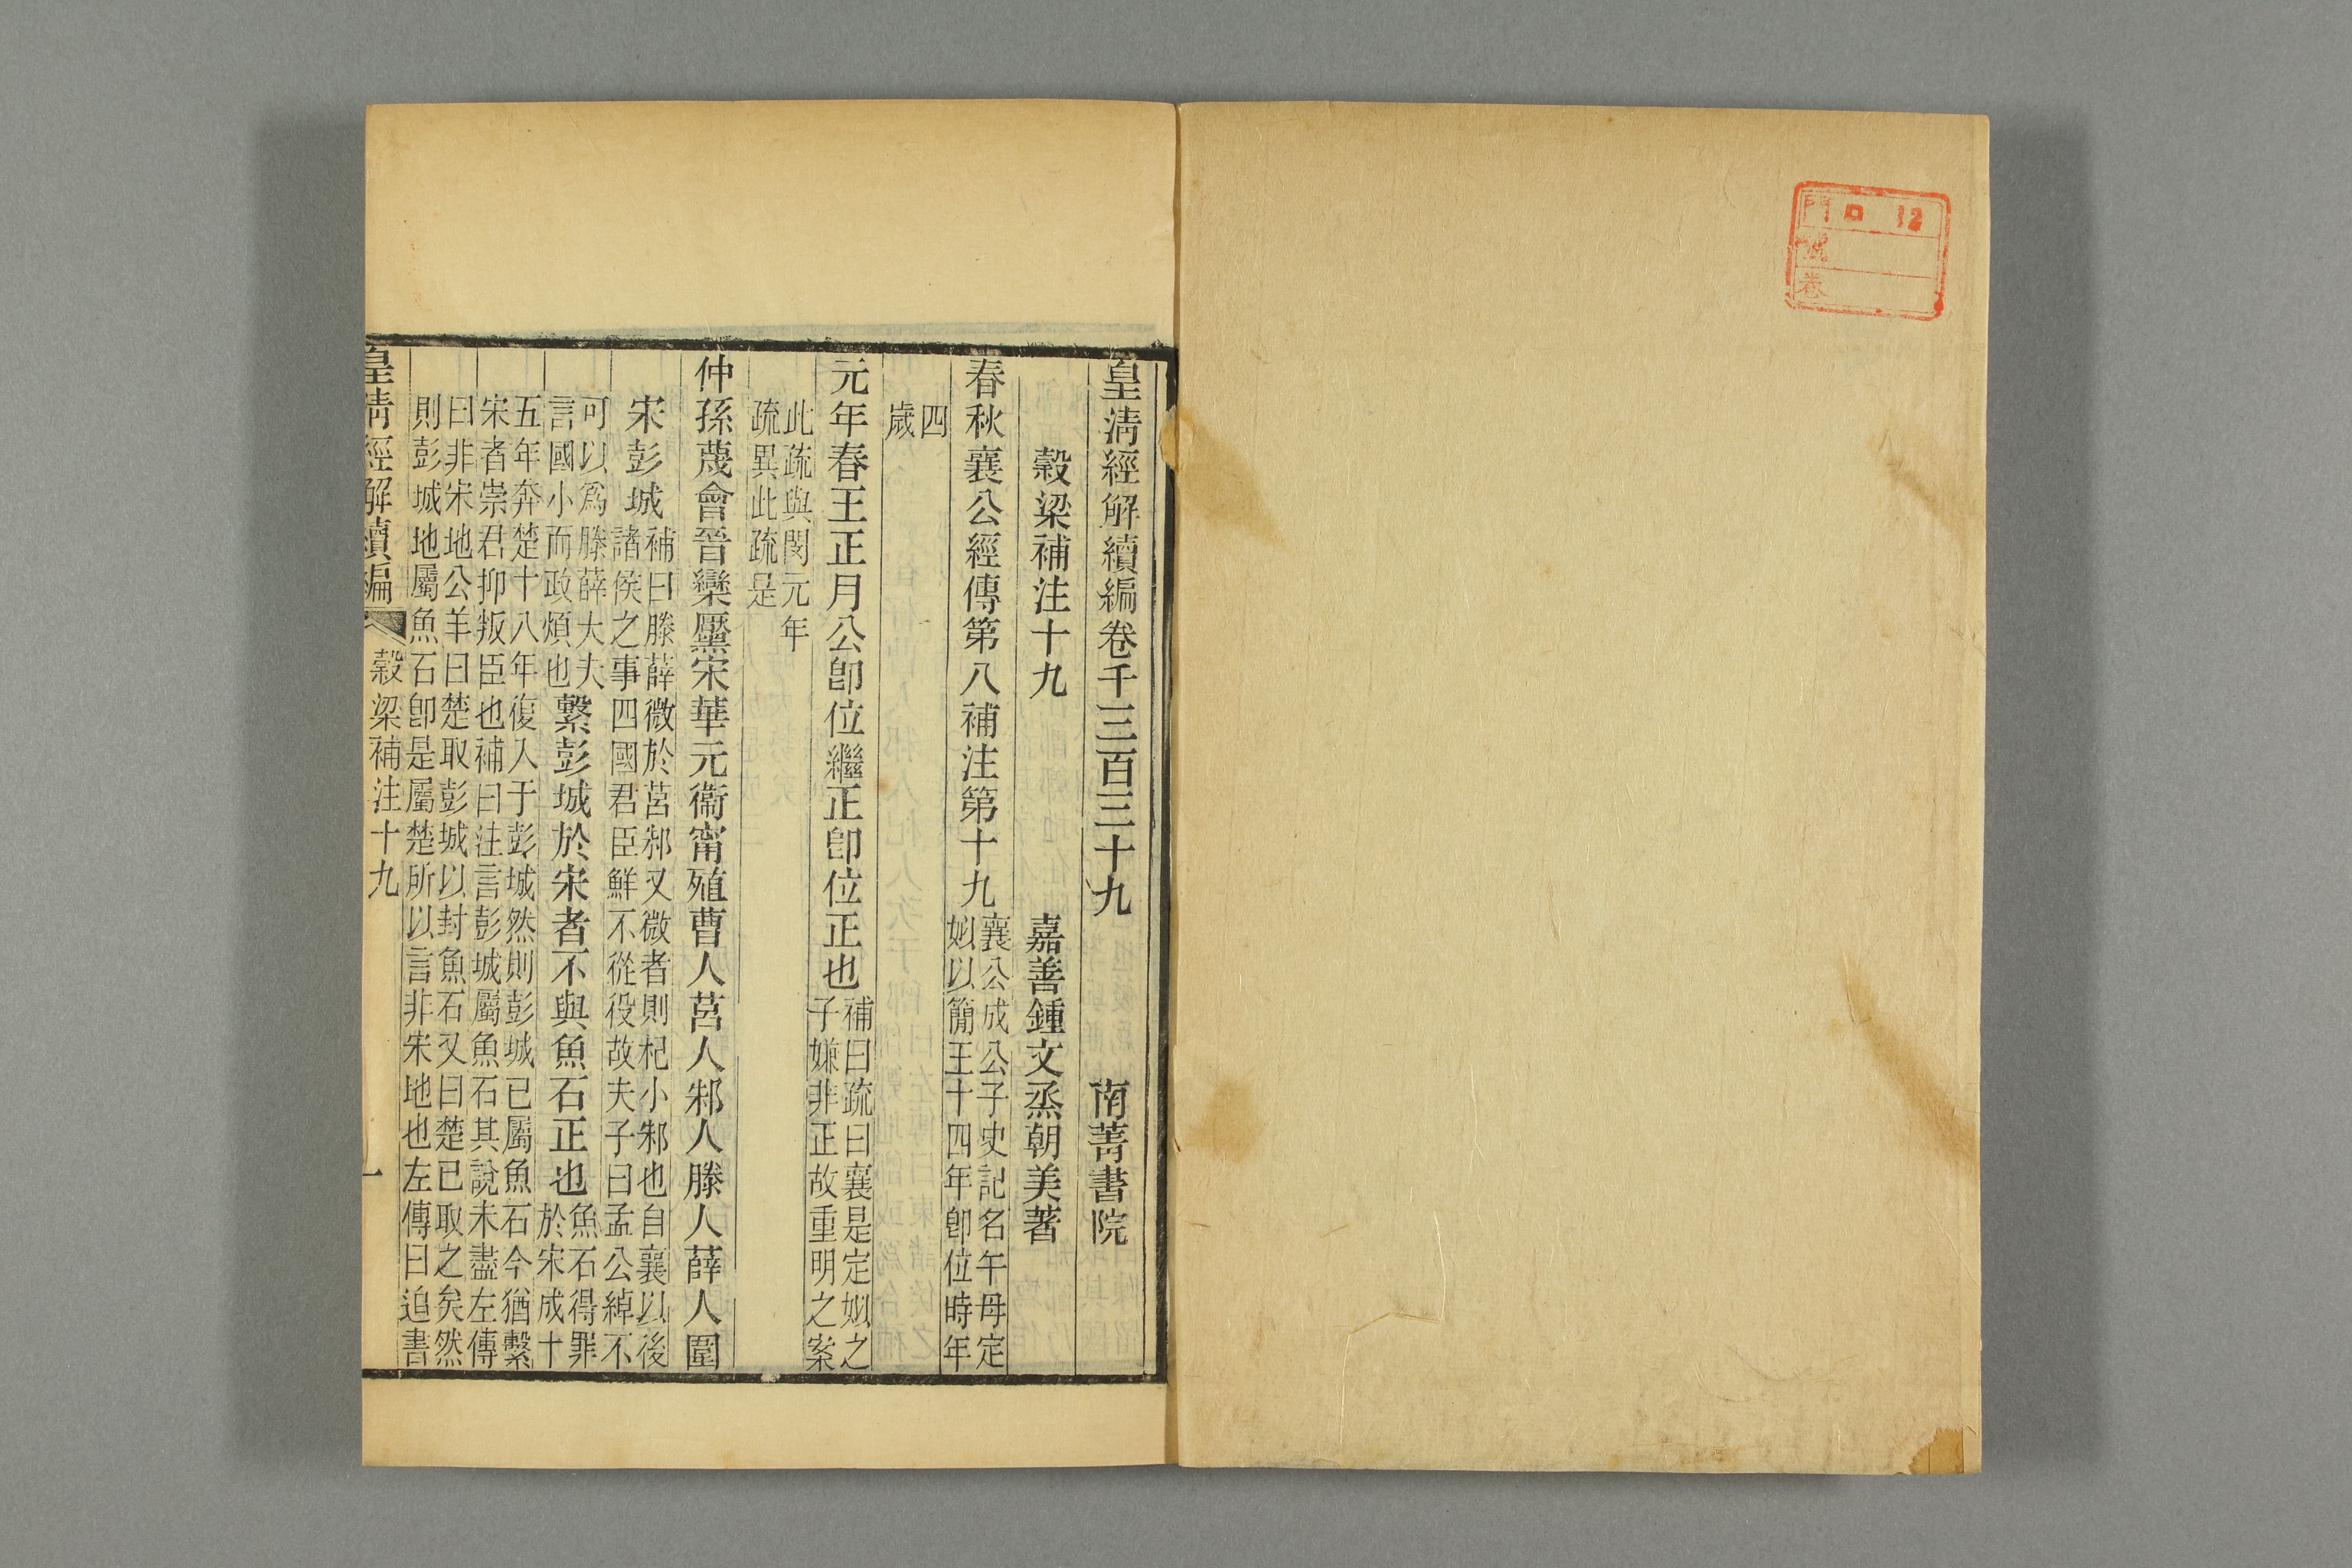 門 口 12
號
卷
皇清經解續編卷千三百三十九 南菁書院
穀梁補注十九 嘉善鍾文烝朝美著
春秋襄公經傳第八補注第十九 襄公成公子史記名午母定
姒以簡王十四年卽位時年
四
歲
元年春王正月公卽位繼正卽位正也 補曰疏曰襄是定姒之
子嫌非正故重明之案
此疏與閔元年
疏異此疏是
仲孫蔑會晉欒黶宋華元衞甯殖曹人莒人邾人滕人薛人圍
宋彭城 補曰滕薛微於莒邾又微者則杞小邾也自襄以後
諸侯之事四國君臣鮮不從役故夫子曰孟公綽不
可以爲滕薛大夫
言國小而政煩也
繫彭城於宋者不與魚石正也 魚石得罪
於宋成十
五年奔楚十八年復入于彭城然則彭城已屬魚石今猶繫
宋者崇君抑叛臣也補曰注言彭城屬魚石其說未盡左傳
曰非宋地公羊曰楚取彭城以封魚石又曰楚已取之矣然
則彭城地屬魚石卽是屬楚所以言非宋地也左傳曰追書
皇清經解續編 穀梁補注十九 一